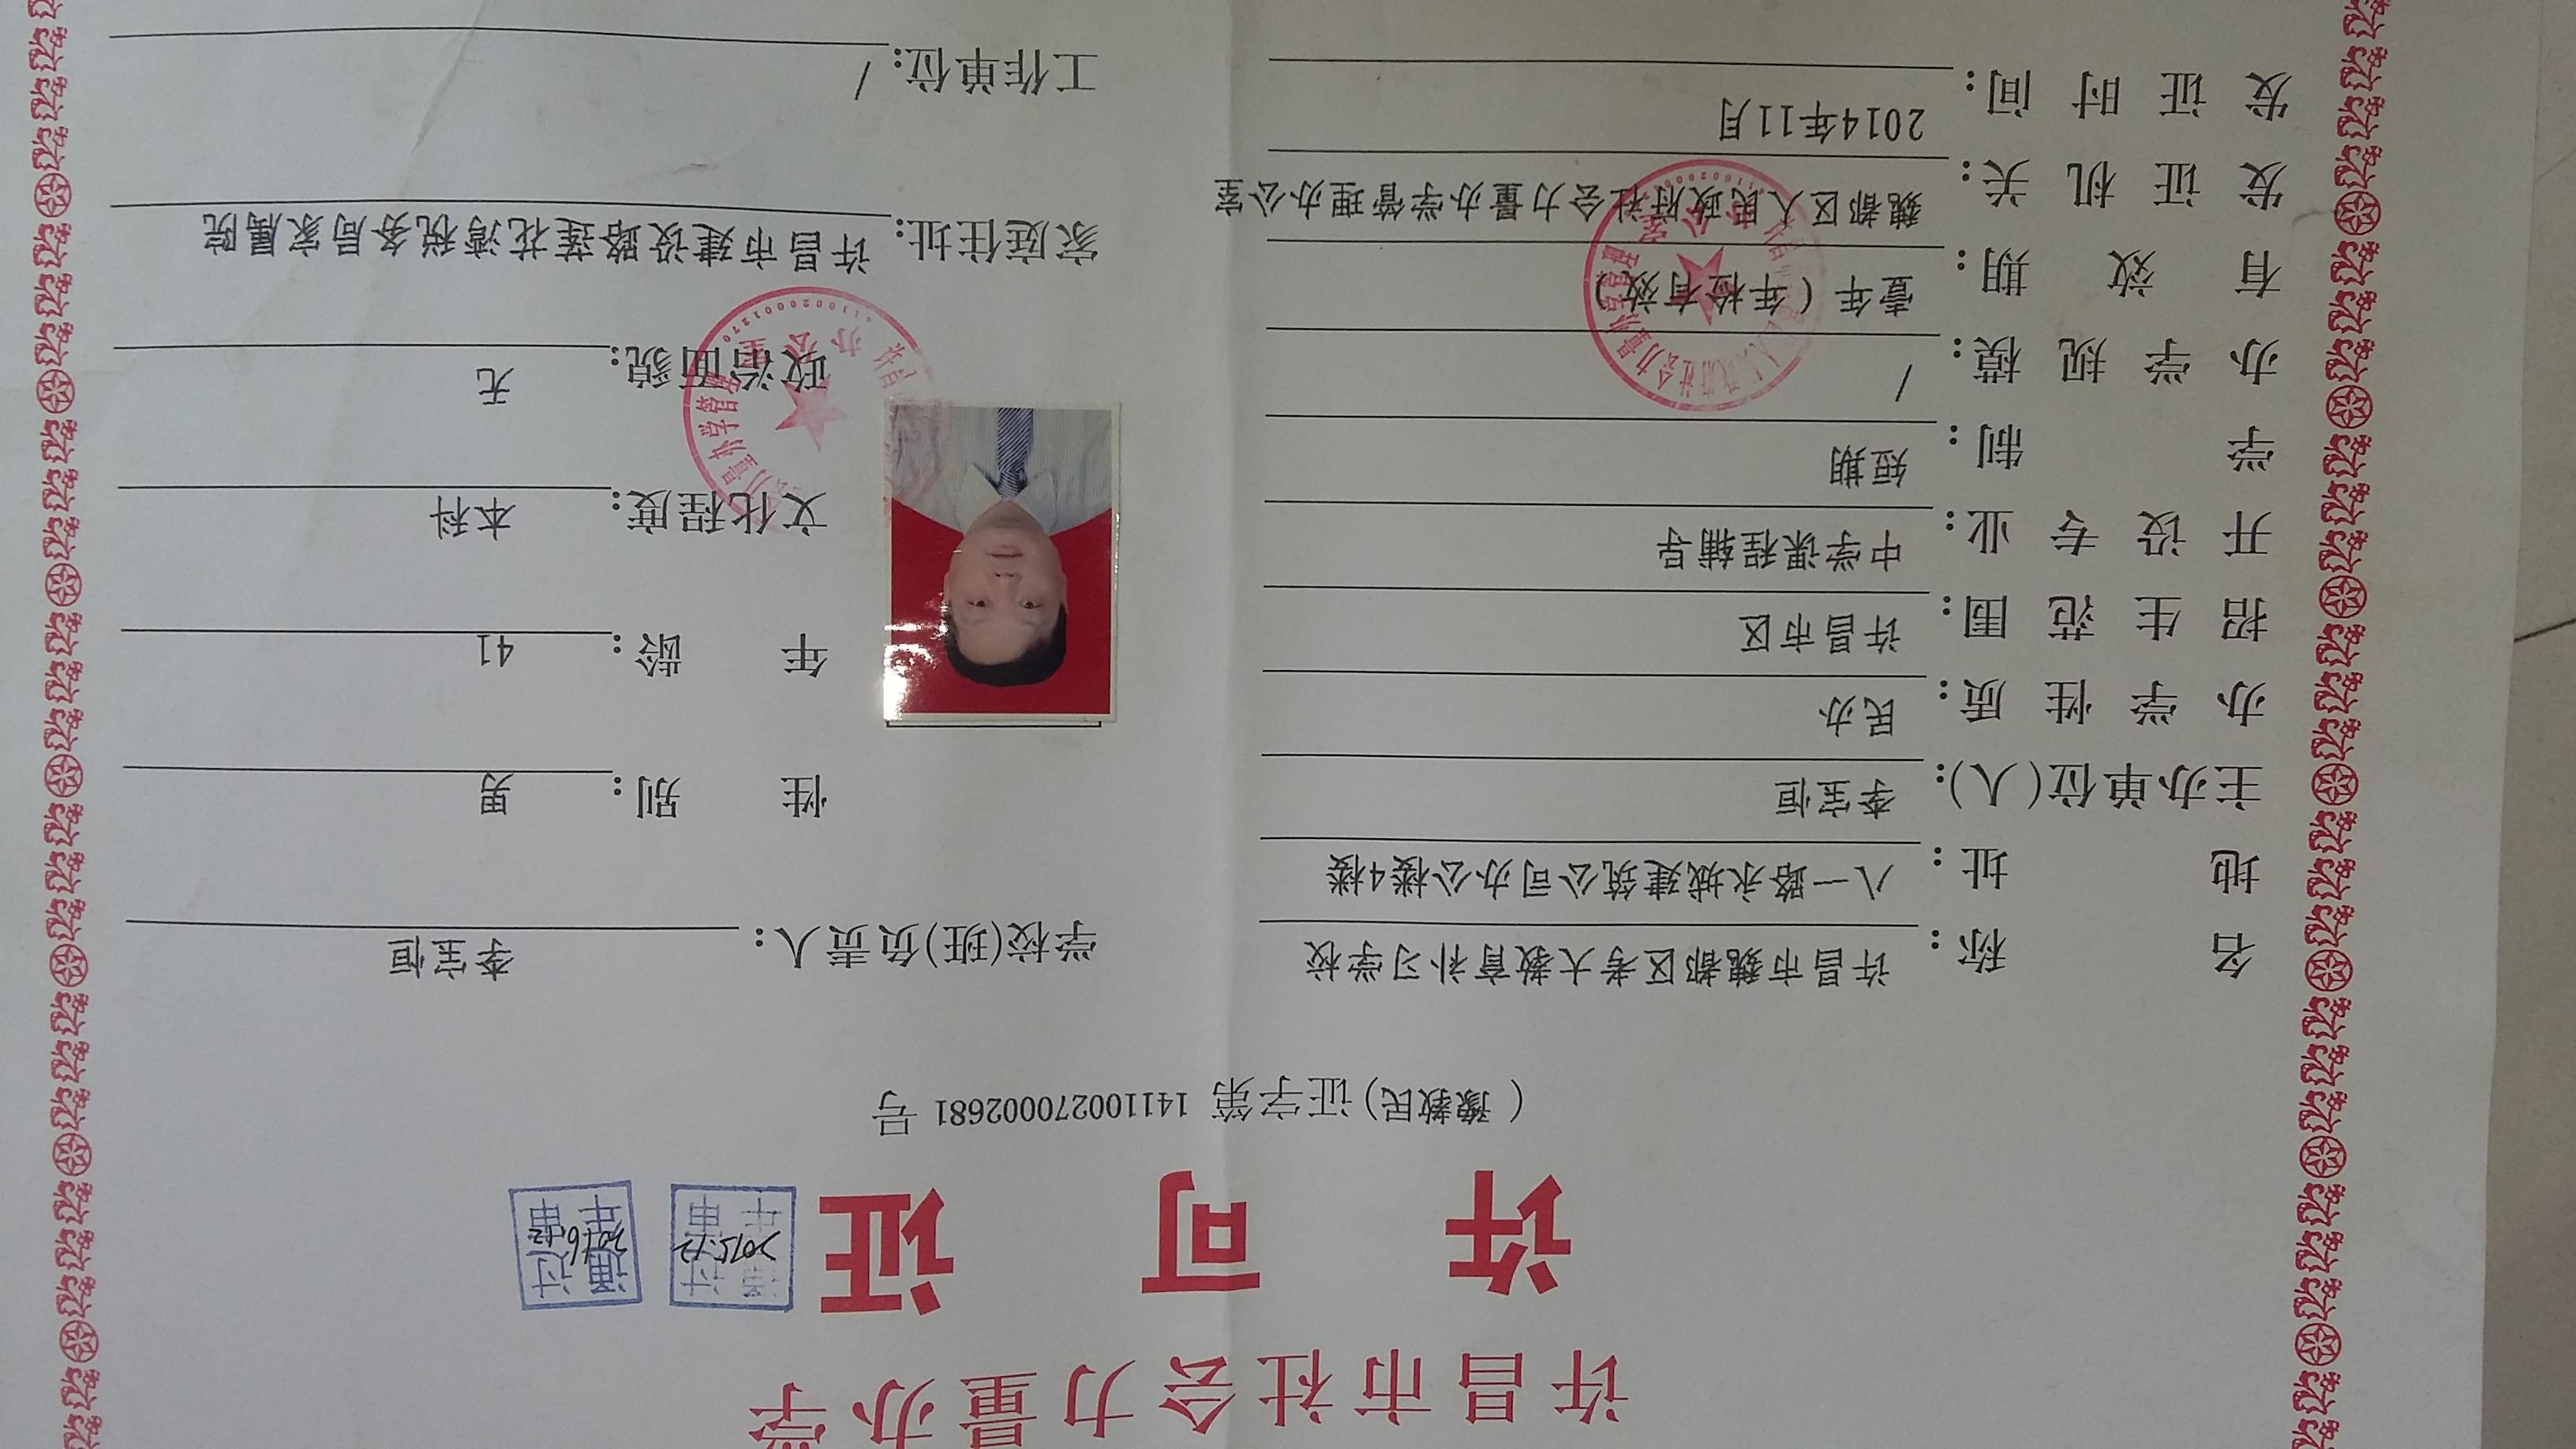 许昌市社会力量办学
许可证
通过 2015.12 年审
通过 2016.12 年审
(豫教民)证字第 141100270002681 号
名称: 许昌市魏都区考大教育补习学校
地址: 八一路永城建筑公司办公楼4楼
主办单位(人): 李宝恒
办学性质: 民办
招生范围: 许昌市区
开设专业: 中学课程辅导
学制: 短期
办学规模: /
有效期: 壹年(年检有效)
发证机关: 魏都区人民政府社会力量办学管理办公室
发证时间: 2014年11月
学校(班)负责人: 李宝恒
性别: 男
年龄: 41
文化程度: 本科
政治面貌: 无
家庭住址: 许昌市建设路莲花湾税务局家属院
工作单位: /